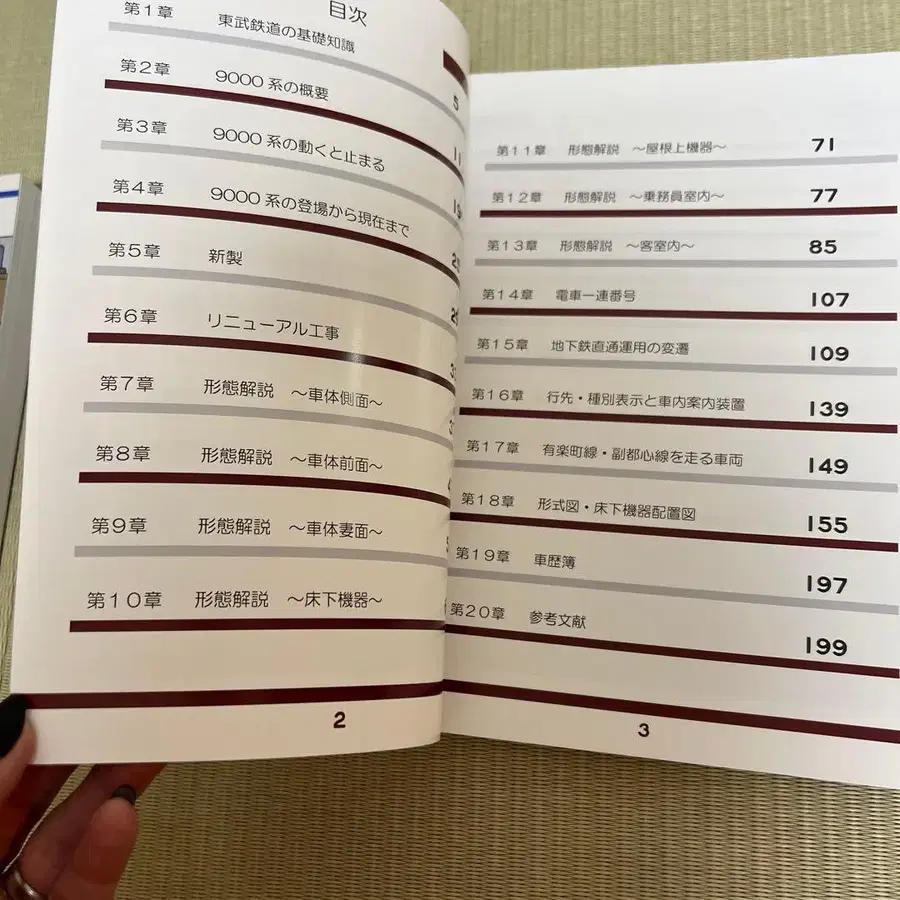 目次
第1章 東武鉄道の基礎知識
第2章 9000系の概要 5
第3章 9000系の動くと止まる 11
第4章 9000系の登場から現在まで 19
第5章 新製
第6章 リニューアル工事
第7章 形態解説 ～車体側面～
第8章 形態解説 ～車体前面～
第9章 形態解説 ～車体妻面～
第10章 形態解説 ～床下機器～
2
第11章 形態解説 ～屋根上機器～ 71
第12章 形態解説 ～乗務員室内～ 77
第13章 形態解説 ～客室内～ 85
第14章 電車一連番号 107
第15章 地下鉄直通運用の変遷 109
第16章 行先・種別表示と車内案内装置 139
第17章 有楽町線・副都心線を走る車両 149
第18章 形式図・床下機器配置図 155
第19章 車歴簿 197
第20章 参考文献 199
3